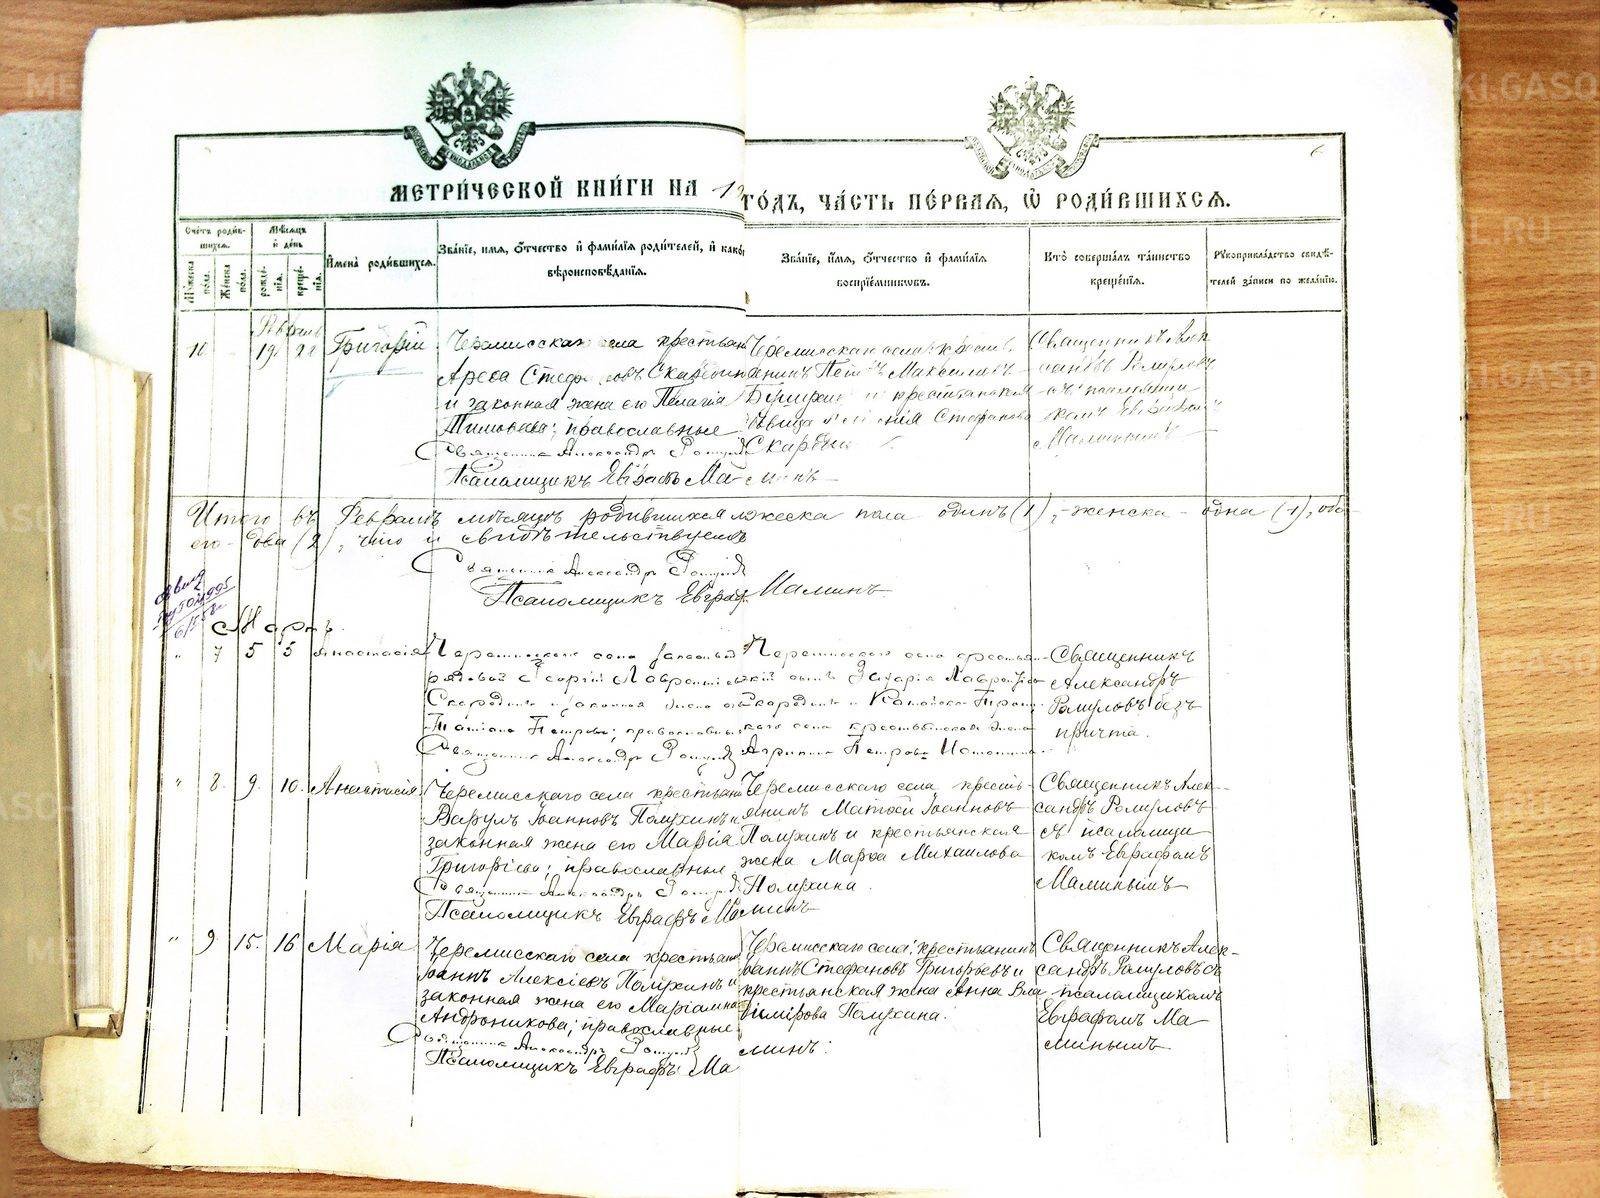 МЕТРИ́ЧЕСКОЙ КНИ́ГИ НА 19
ГО́ДЪ, ЧА́СТЬ ПЕ́РВАЯ, Ѿ РОДИ́ВШИХСЯ.
6
Сче́тъ роди́вшихся.
Му́жеска пола.
Же́нска пола.
Мѣ́сяцъ и́ день
рожде́нїя.
креще́нїя.
И́мена̀ роди́вшихся.
Зва́нїе, и́мя, ѻ́тчество и҆ фами́лїя роди́телей, и҆ како́
вѣроисповѣ́данїя.
Зва́нїе, и́мя, ѻ́тчество и҆ фами́лїя
воспрїе́мниковъ.
Кто̀ соверша́лъ та́инство
креще́нїя.
Рукоприкла́дство свидѣ́-
телей за́писи по жела́нїю.
10
19 22
Григорій
Черемисскаго села крестьян
Арефа Стеф
и законная жена его Пелагія
православные
Священникъ Александръ Ромулов
Псаломщикъ Евграфъ Ма-
минъ
Черемисскаго села крестья
анинъ Петръ Максимовъ
и крестьянская
дѣвица Стефанова
Священникъ Алек
сандръ Ромуловъ
съ псаломщи
комъ Евграфомъ
Маминымъ
Итого въ Февралѣ мѣсяцѣ родившихся мужеска пола одинъ (1), женска - одна (1), обо
его - два (2), что и свидѣтельствуемъ
Священникъ Александръ Ромулов
Псаломщикъ Евграф. Маминъ
Мартъ.
" 7 5 5 Анастасія
Черемисскаго села запасный
рядовой Георгій Лаврентіев
Скародинъ и законная жена его
Татіана Петрова; православные
Священникъ Александръ Ромулов
Черемисскаго села крестьян-
скій сынъ Захарія Лаврентіев
кого села крестьянская жена
Агрипина Петрова
Священникъ
Александръ
Ромуловъ безъ
причта.
" 8. 9. 10. Анастасія
Черемисскаго села крестьяни
Варулъ Іоанновъ Полухинъ и
законная жена его Марія
Григоріева; православные
Священникъ Александръ Ромулов
Псаломщикъ Евграфъ Маминъ
Черемисскаго села кресть-
янинъ Матѳей Іоанновъ
Полухинъ и крестьянская
жена Марѳа Михаилова
Полухина.
Священникъ Алек-
сандръ Ромуловъ
съ псаломщи
комъ Евграфомъ
Маминымъ
" 9 15. 16 Марія
Черемисскаго села крестьян
Іоаннъ Алексіевъ Полухинъ и
законная жена его Маріамна
Андроникова; православные
Священникъ Александръ Ромулов
Псаломщикъ Евграфъ Ма
минъ.
Черемисскаго села: крестьянинъ
Іоаннъ Стефановъ Григорьевъ и
крестьянская жена Анна Вла
димірова Полухина.
Священникъ Алек-
сандръ Ромуловъ съ
псаломщикомъ
Евграфомъ Ма
минымъ